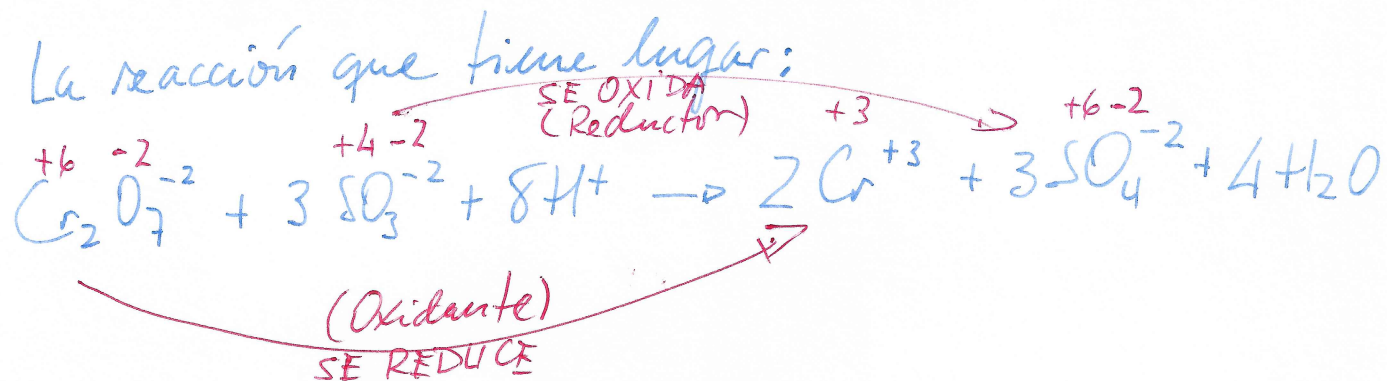 La reacción que tiene lugar:
SE OXIDA
(Reductor)
+6 -2 +4 -2 +3 +6 -2
Cr₂O₇⁻² + 3 SO₃⁻² + 8H⁺ → 2 Cr⁺³ + 3 SO₄⁻² + 4 H₂O
(Oxidante)
SE REDUCE